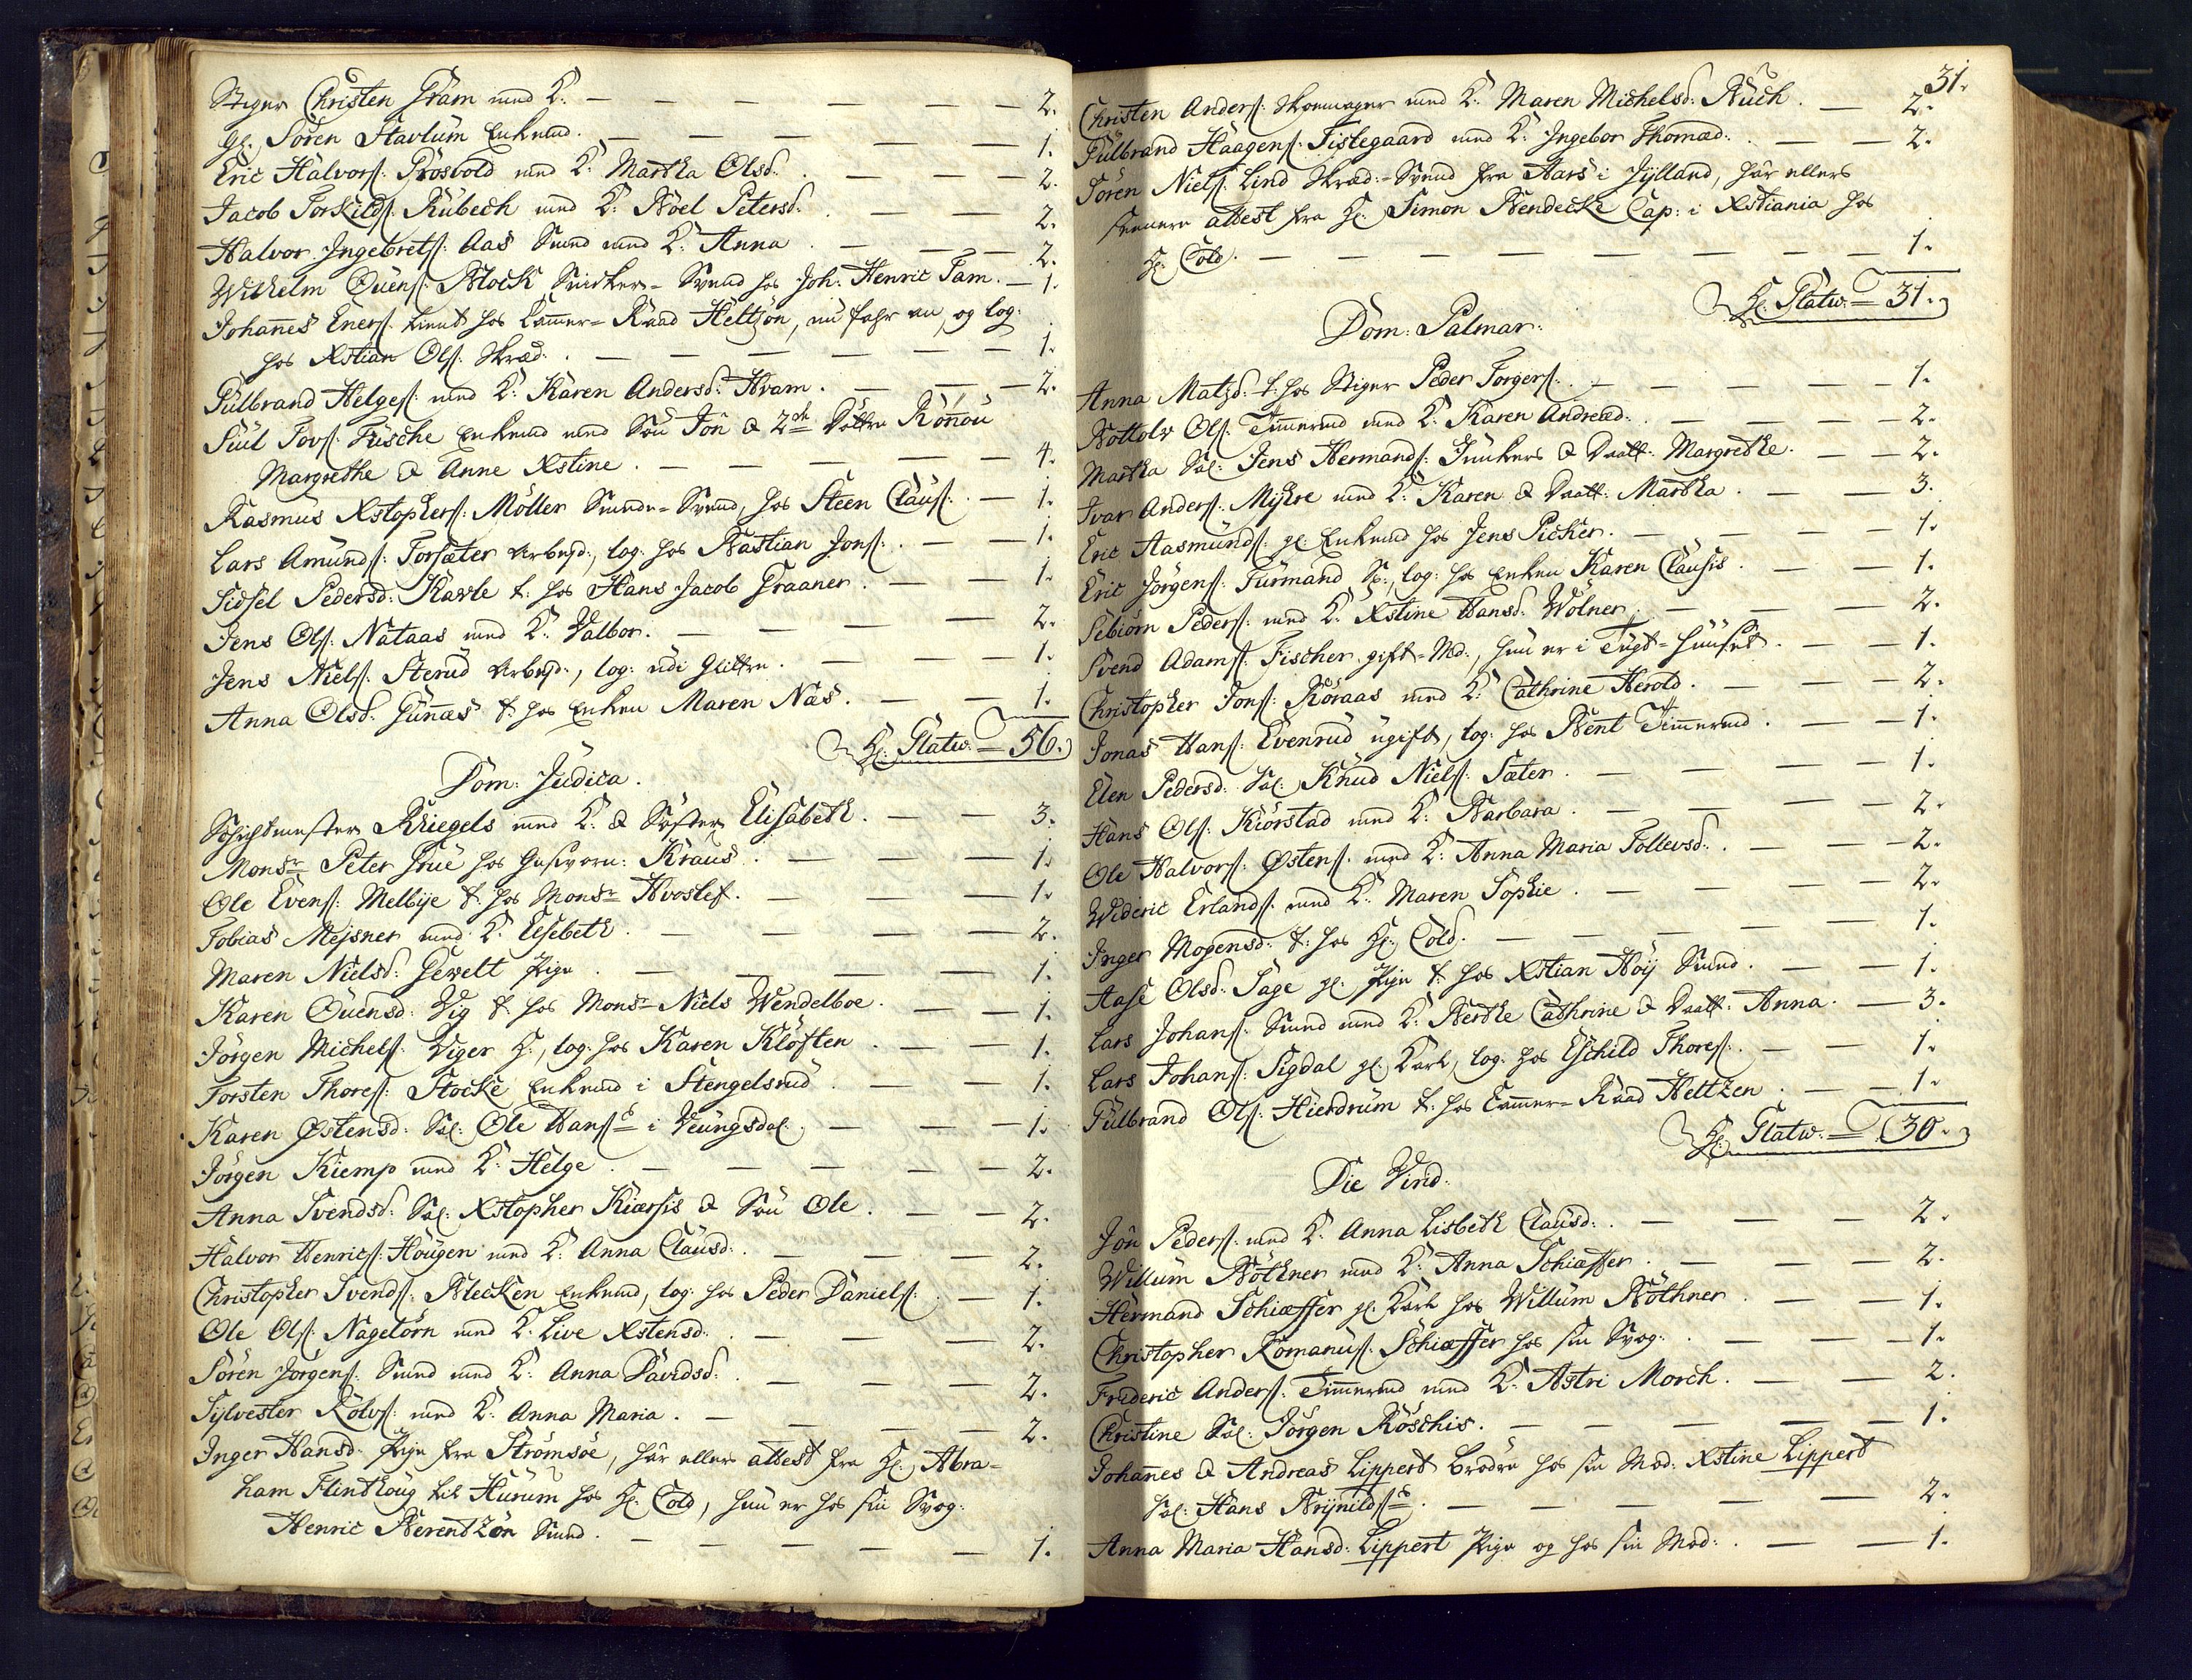 Stiger Christen Gram med K: — 2.
gl. Sören Stavlüm Enkemd. — 1.
Eric Halvors: Prösvold med K: Martha Olsd. — 2.
Jacob Torkilds: Rübech med K: Boel Petersd. — 2.
Halvor Ingebrets: Aas Smed med K: Anna — 2.
Wilhelm Ouens: Block Snidker-Svend hos Joh: Henric Tam. — 1.
Johañes Eners: tient hos Cam̃er-Raad Heltzön, nu fahr an, og log:
hos Xstian Ols: Skræd. — 1.
Gülbrand Helges: med K: Karen Andersd: Hvam. — 2.
Siül Tovs: Füsche Enkemd med Sön Jon & 2de Döttre Röñou
Margrethe & Anne Xstine. — 4.
Rasmus Xstophers: Möller Smede-Svend, hos Steen Claus: — 1.
Lars Amunds: Torsæter Arbeyd:, log: hos Bastian Jons: — 1.
Sidsel Pedersd: Kavle t: hos Hans Jacob Graaner. — 1.
Jens Ols: Nataas med K: Valbor. — 2.
Jens Niels: Sterud Arbeyd:, log: udi Glittre. — 1.
Anna Olsd: Guñæs t: hos Enken Maren Næs. — 1.
Hr. Platw. = 56.
Dom: Judica.
Schichtmester Kriegels med K: & Söster Elisabeth. — 3.
Monsr Peter Grue hos Gesvorn: Kraus. — 1.
Ole Evens: Melbye t: hos Monsr Hvoslef. — 1.
Tobias Mejsner med K: Elsebeth. — 2.
Maren Nielsd: Gevelt Pige. — 1.
Karen Ouensd: Vig t: hos Monsr Niels Wendelboe. — 1.
Jörgen Michels: Viger S:, log: hos Karen Klöften. — 1.
Torsten Thores: Stocke Enkemd i Stengelsrud. — 1.
Karen Østensd: Sal: Ole Hansses i Jeungsdal. — 1.
Jörgen Kiemp med K: Helge. — 2.
Anna Svendsd: Sal: Xstopher Kiærsis & Sön Ole. — 2.
Halvor Henrics: Hougen med K: Anna Clausd: — 2.
Christopher Svends: Blecken Enkemd, log: hos Peder Daniels: — 1.
Ole Ols: Nagelörn med K: Live Xstensd: — 2.
Sören Jörgens: Smed med K: Anna Davidsd: — 2.
Sylvester Rolvs: med K: Anna Maria. — 2.
Inger Hansd: Pige fra Strömsöe, har ellers attest fra Hr. Abra-
ham Flinthoug til Hurum hos Hr. Cold, hun er hos sin Svog:
Henric Berentzön Smed. — 1.
31.
Christen Anders: Skomager med K: Maren Michelsd: Buch. — 2.
Gülbrand Haagens: Fistegaard med K: Ingebor Thomæd: — 2.
Sören Niels: Lind Skræd:-Svend fra Aars i Jylland, har ellers
senere attest fra Hr. Simon Bendecke Cap: i Xstiania hos
Hr. Cold. — 1.
Hr. Platw. = 31.
Dom: Palmar:
Anna Matsd: t: hos Stiger Peder Torgers: — 1.
Bottolv Ols: Tim̃ermd med K: Karen Andreæd: — 2.
Martha Sal: Jens Hermands: Junkers & Daatt: Margrethe. — 2.
Ivar Anders: Myhre med K: Karen & Daatt: Martha. — 3.
Eric Aasmunds: gl: Enkemd hos Jens Picker. — 1.
Eric Jörgens: Furmand S:, log: hos Enken Karen Clausis. — 1.
Sebiörn Peders: med K: Xstine Hansd: Wölner. — 2.
Svend Adams: Fischer gift-Md., hun er i Tugt-Huuset. — 1.
Christopher Jons: Röraas med K: Cathrine Herold. — 2.
Jonas Hans: Evenrud ugift, log: hos Bent Tim̃ermd. — 1.
Elen Pedersd: Sal: Knud Niels: Sæter. — 1.
Hans Ols: Kiörstad med K: Barbara. — 2.
Ole Halvors: Østens: med K: Anna Maria Tollevsd. — 2.
Wideric Erlands: med K: Maren Sophie. — 2.
Inger Mogensd: t: hos Hr. Cold. — 1.
Aase Olsd: Sage gl. Pige t: hos Xstian Höy Smed. — 1.
Lars Johans: Smed med K: Berthe Cathrine & Daatt: Anna. — 3.
Lars Johans: Sigdal gl. Karl, log: hos Eschild Thores: — 1.
Gülbrand Ols: Hierdrum t: hos Cam̃er-Raad Heltzen. — 1.
Hr. Platw. = 30.
Die Virid:
Jon Peders: med K: Anna Lisbeth Clausd: — 2.
Willum Böthner med K: Anna Schiæffer. — 2.
Hermand Schiæffer gl. Karl hos Willum Böthner — 1.
Christopher Romanus: Schiæffer hos sin Svog: — 1.
Frideric Anders: Tim̃ermd med K: Astri Morch. — 2.
Christine Sal: Jörgen Röschis. — 1.
Johañes & Andreas Lippert Brödre hos sin Mod: Xstine Lippert
Sal: Hans Brynildses. — 2.
Anna Maria Hansd: Lippert Pige og hos sin Mod: — 1.